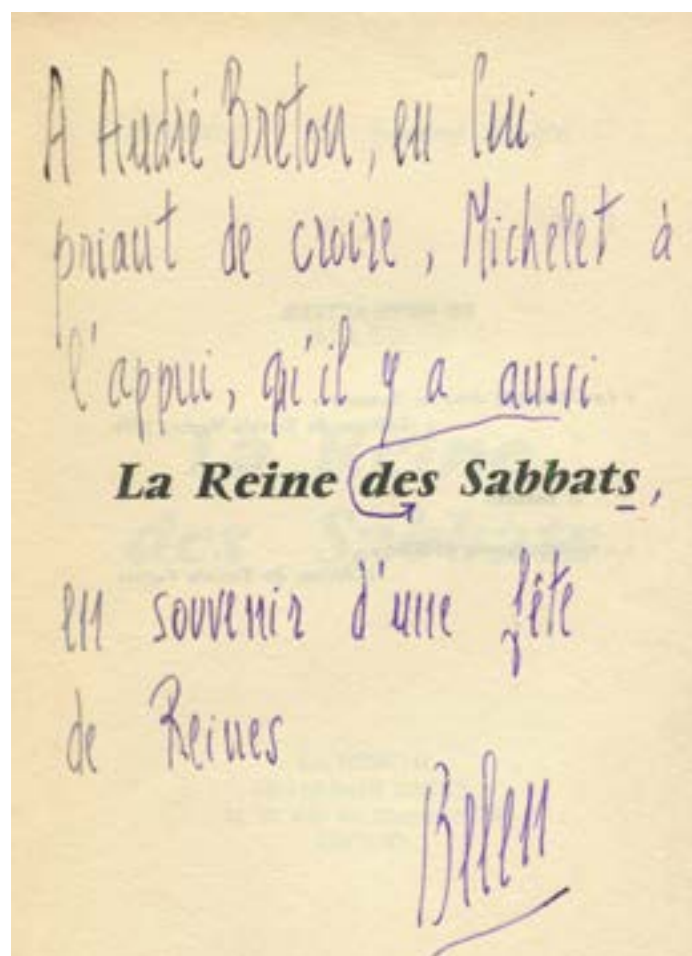 A André Breton, en lui
priant de croire, Michelet à
l'appui, qu'il y a aussi
La Reine des Sabbats,
en souvenir d'une fête
de Reines
Belen